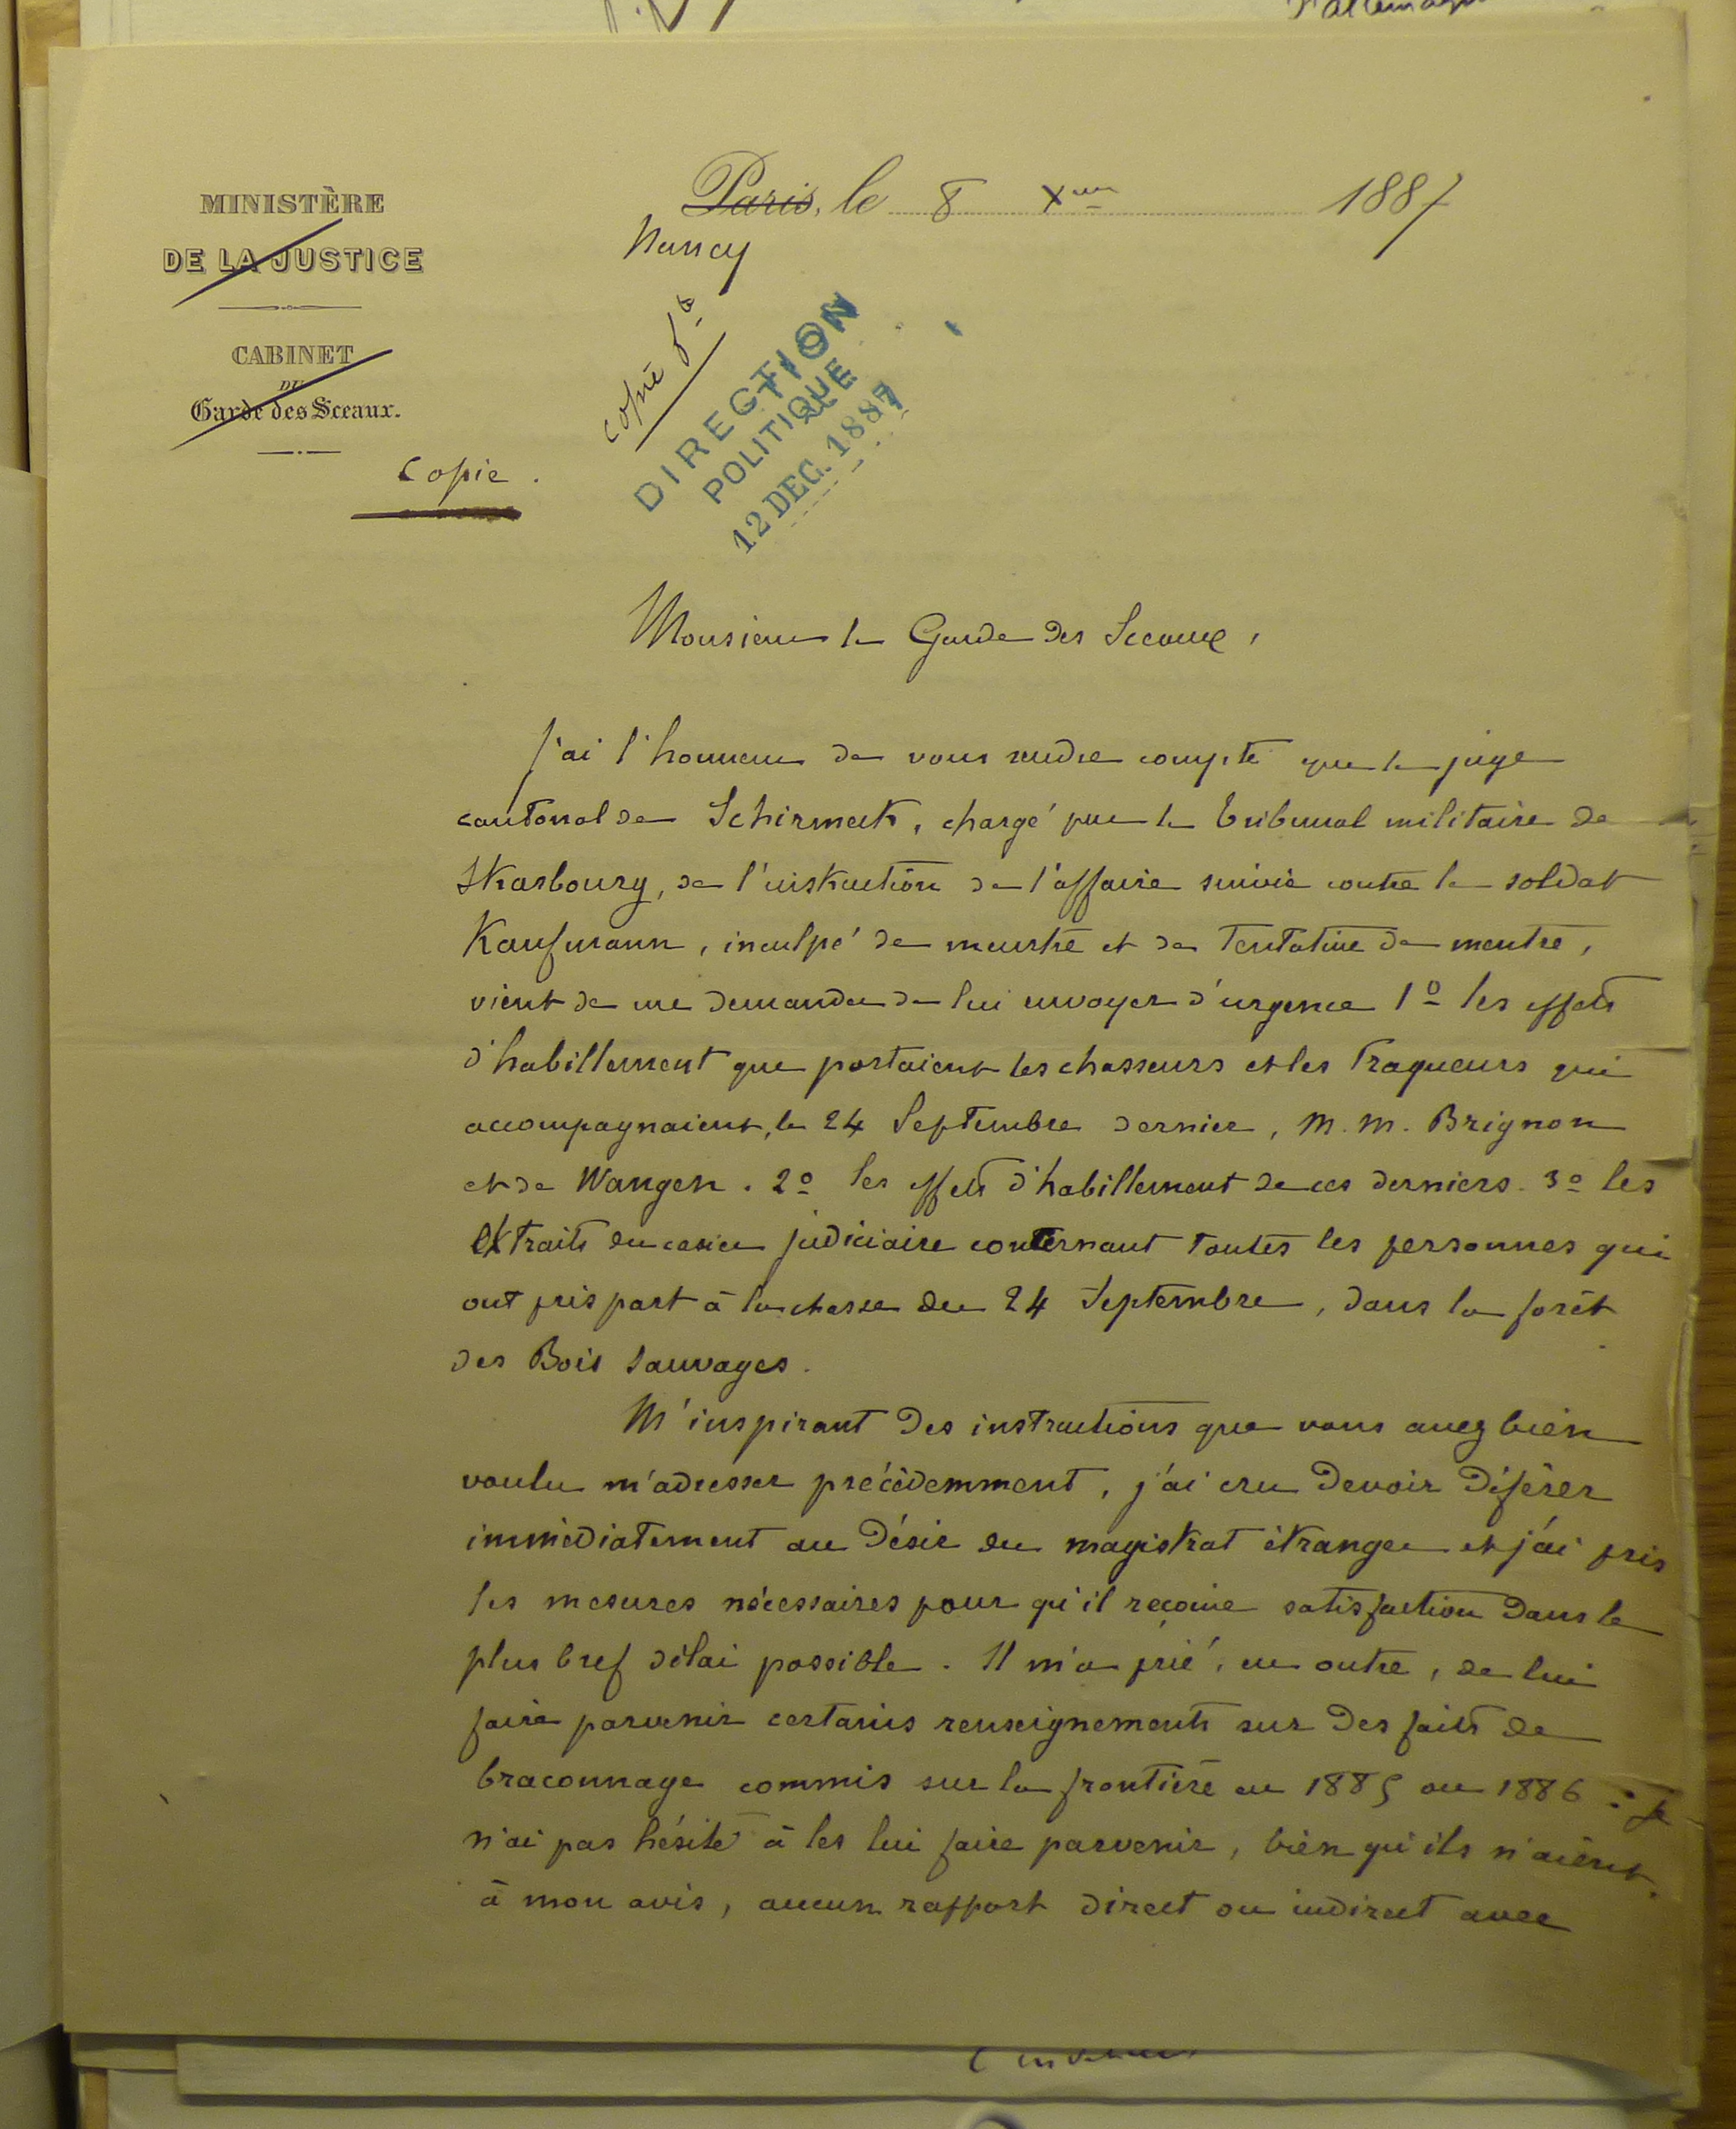 l'allemagne
MINISTÈRE
DE LA JUSTICE
CABINET
DU
Garde des Sceaux.
Copie.
Paris, le 8 Xbre 1887
Nancy
copié
DIRECTION
POLITIQUE
12 DEC. 1887
Monsieur le Garde des Sceaux,
J'ai l'honneur de vous rendre compte que le juge
cantonal de Schirmeck, chargé par le tribunal militaire de
Strasbourg, de l'instruction de l'affaire suivie contre le soldat
Kaufmann, inculpé de meurtre et de tentative de meurtre,
vient de me demander de lui envoyer d'urgence 1º les effets
d'habillement que portaient les chasseurs et les traqueurs qui
accompagnaient, le 24 Septembre dernier, M. M. Brignon
et de Wangen. 2º les effets d'habillement de ces derniers. 3º les
extraits du casier judiciaire concernant toutes les personnes qui
ont pris part à la chasse du 24 Septembre, dans la forêt
des Bois Sauvages.
M'inspirant des instructions que vous avez bien
voulu m'adresser précédemment, j'ai cru devoir déférer
immédiatement au désir du magistrat étranger et j'ai pris
les mesures nécessaires pour qu'il reçoive satisfaction dans le
plus bref délai possible. Il m'a prié, en outre, de lui
faire parvenir certains renseignements sur des faits de
braconnage commis sur la frontière en 1885 ou 1886 : je
n'ai pas hésité à les lui faire parvenir, bien qu'ils n'aient,
à mon avis, aucun rapport direct ou indirect avec